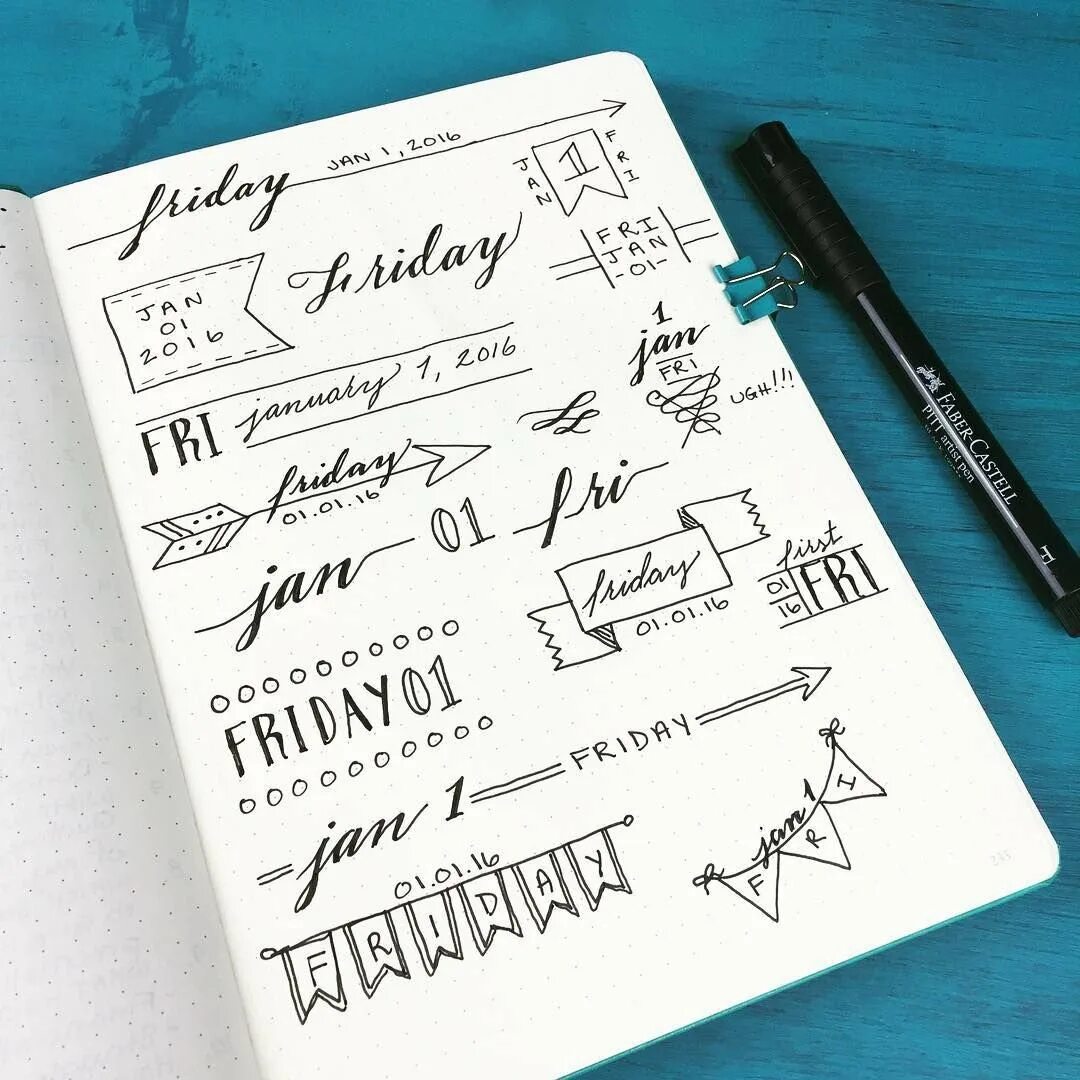 friday JAN 1, 2016
JAN 1 FRI
JAN
01
2016
Friday
FRI
JAN
-01-
FRI january 1, 2016
1
jan
FRI
UGH!!!
friday
01.01.16
jan 01 fri
friday
01.01.16
first
01
16 FRI
FRIDAY 01
jan 1 FRIDAY
01.01.16
FRIDAY
jan 1
F R I
235
FABER-CASTELL
PITT artist pen